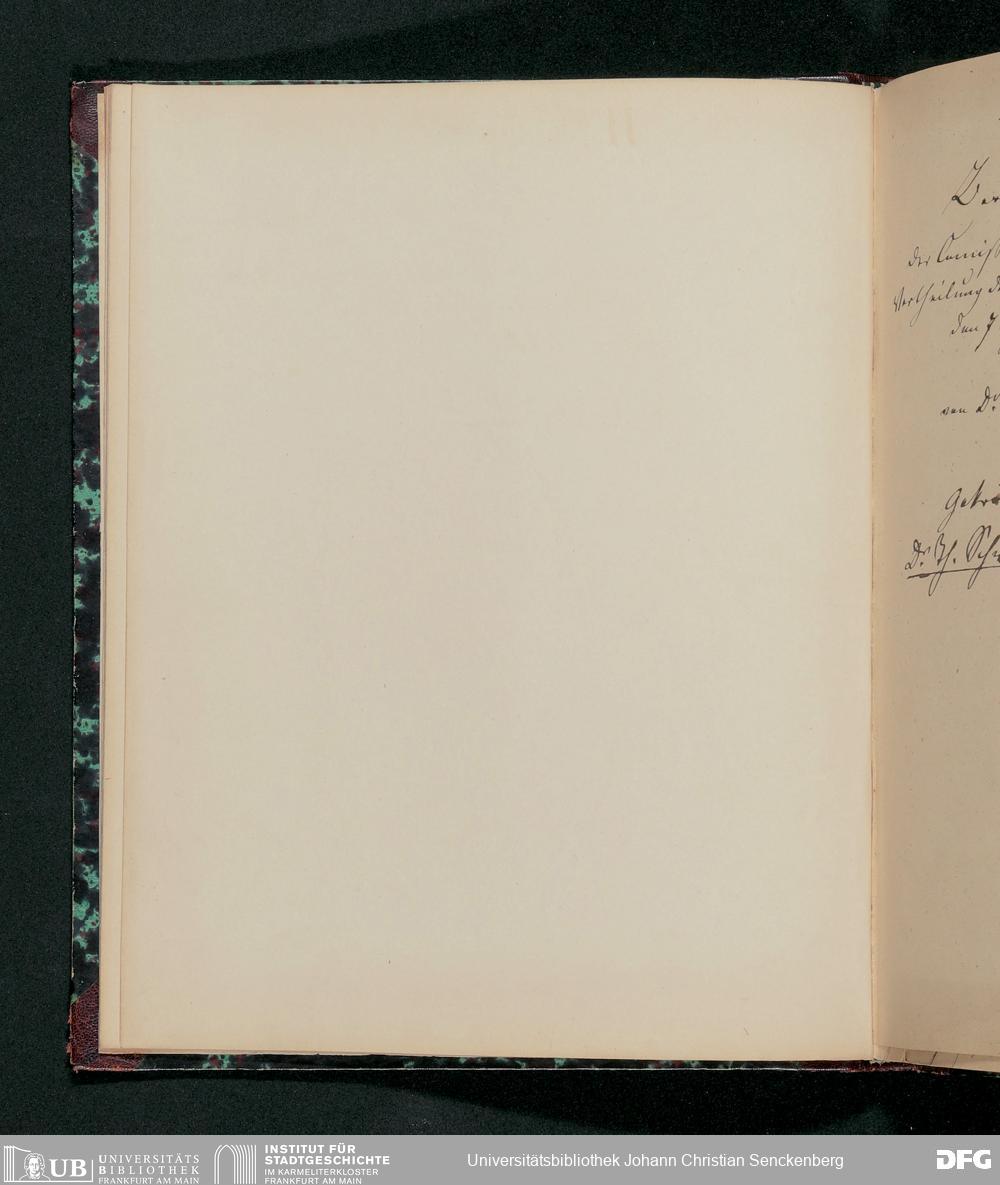 Ber
der Comiss
Vertheilung d
den 7
von Dr.
Gekrö
Dr. Th. Sch
UB
UNIVERSITÄTS
BIBLIOTHEK
FRANKFURT AM MAIN
INSTITUT FÜR
STADTGESCHICHTE
IM KARMELITERKLOSTER
FRANKFURT AM MAIN
Universitätsbibliothek Johann Christian Senckenberg
DFG